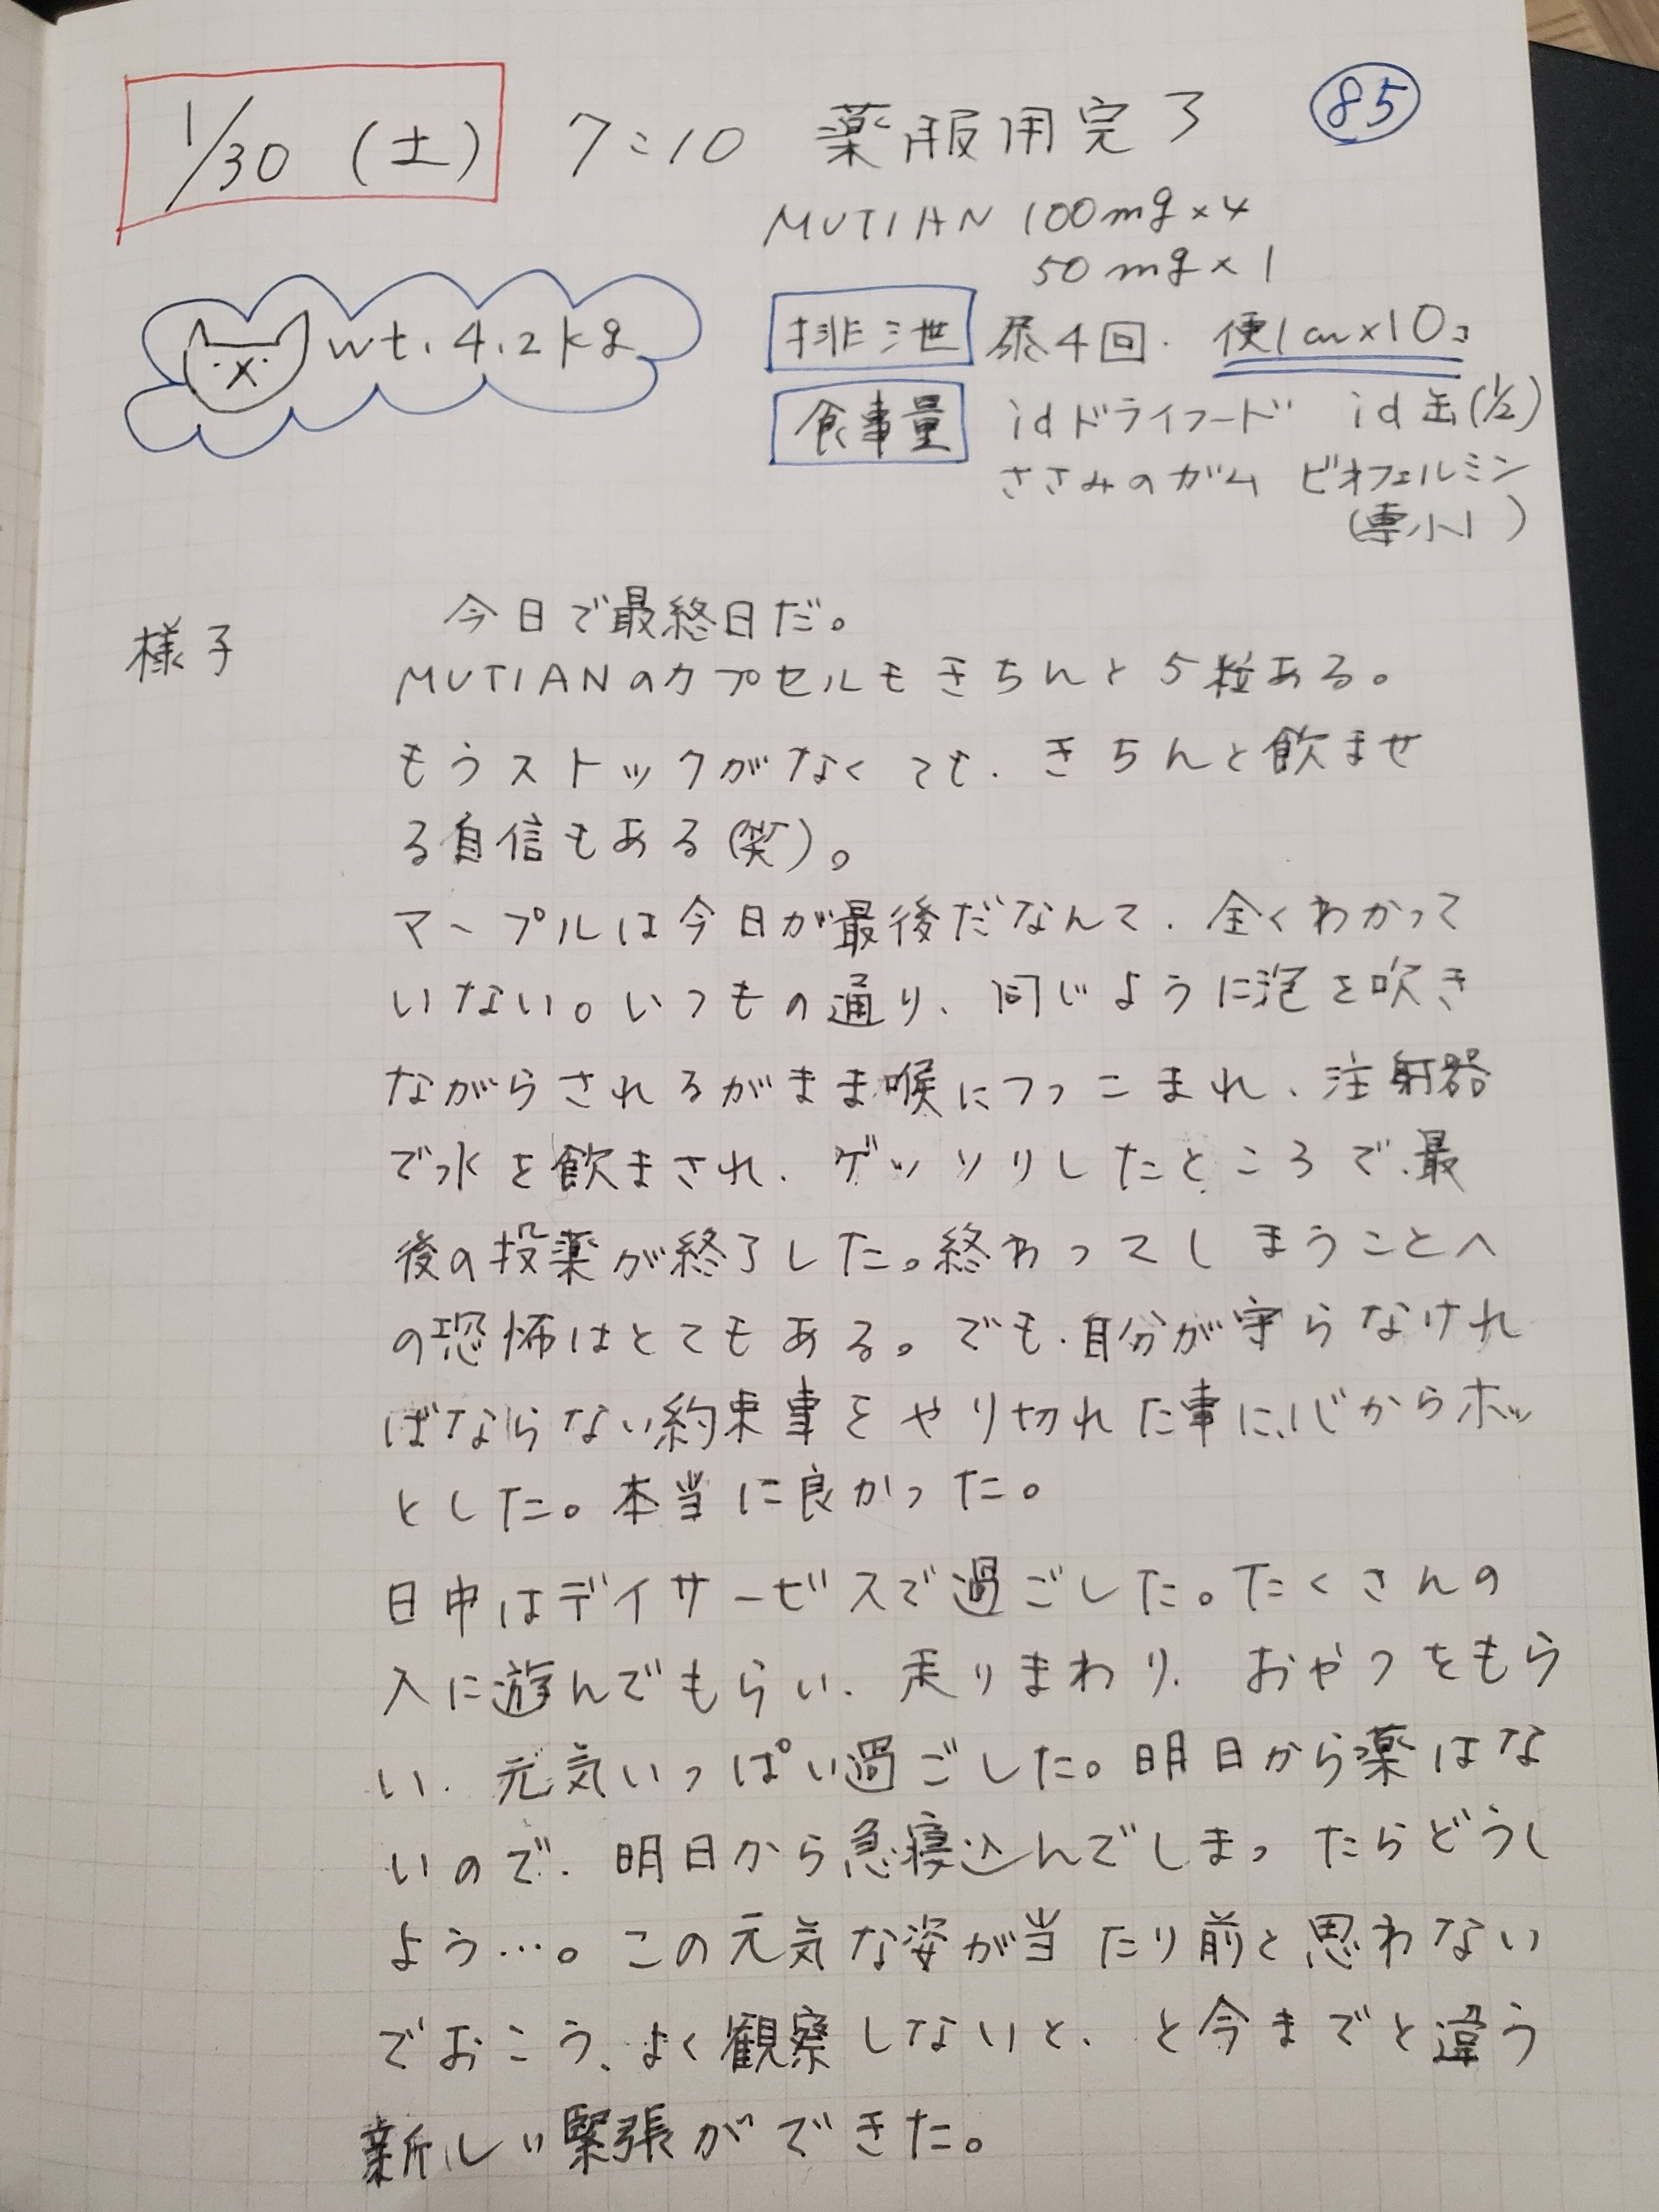 1/30 (土) 7:10 薬服用完了 85
MUTIAN 100mg×4
50mg×1
wt. 4.2kg
排泄 尿4回. 便1cm×10コ
食事量 idドライフード id缶(1/2)
ささみのガム ビオフェルミン
(専小1)
様子
今日で最終日だ。
MUTIANのカプセルもきちんと5粒ある。
もうストックがなくても、きちんと飲ませ
る自信もある(笑)。
マープルは今日が最後だなんて、全くわかって
いない。いつもの通り、同じように泡を吹き
ながらされるがまま喉につっこまれ、注射器
で水を飲まされ、ゲッソリしたところで、最
後の投薬が終了した。終わってしまうことへ
の恐怖はとてもある。でも、自分が守らなけれ
ばならない約束事をやり切れた事に、心からホッ
とした。本当に良かった。
日中はデイサービスで過ごした。たくさんの
人に遊んでもらい、走りまわり、おやつをもら
い、元気いっぱい過ごした。明日から薬はな
いので、明日から急寝込んでしまったらどうし
よう…。この元気な姿が当たり前と思わない
でおこう、よく観察しないと、と今までと違う
新しい緊張ができた。